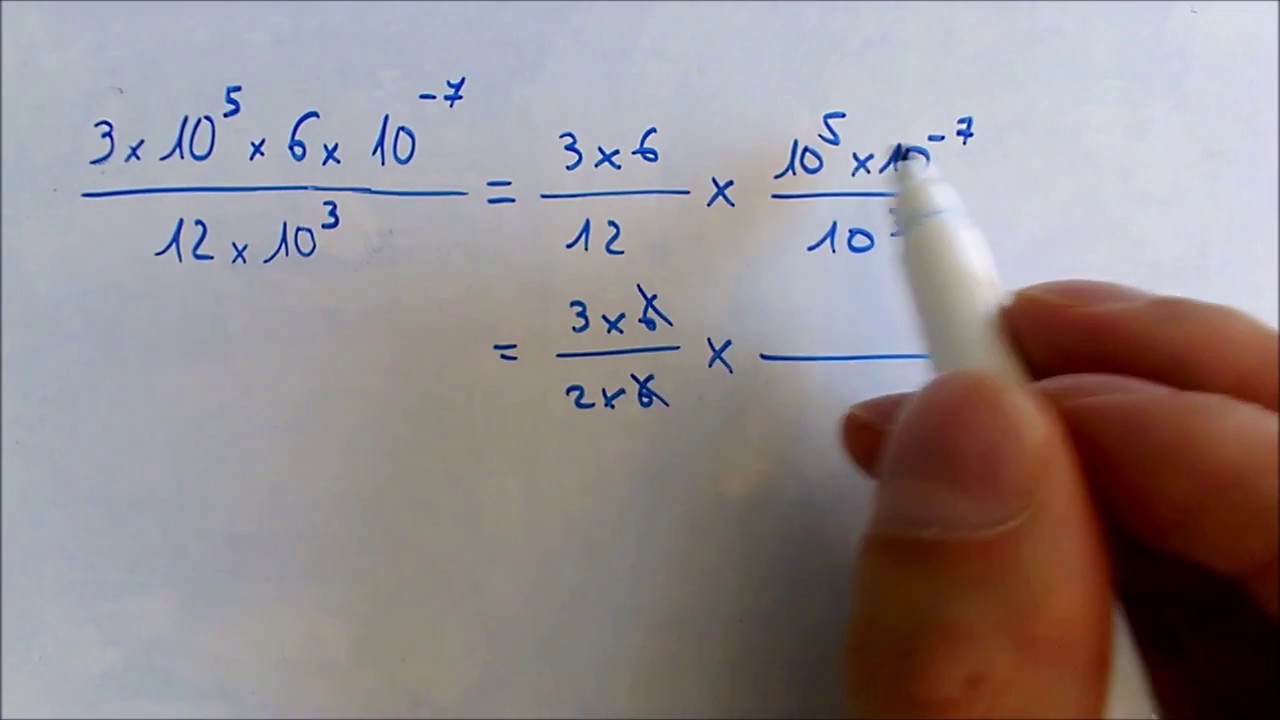 3 × 10⁵ × 6 × 10⁻⁷ / 12 × 10³ = 3 × 6 / 12 × 10⁵ × 10⁻⁷ / 10³
= 3 × 6 / 2 × 6 ×